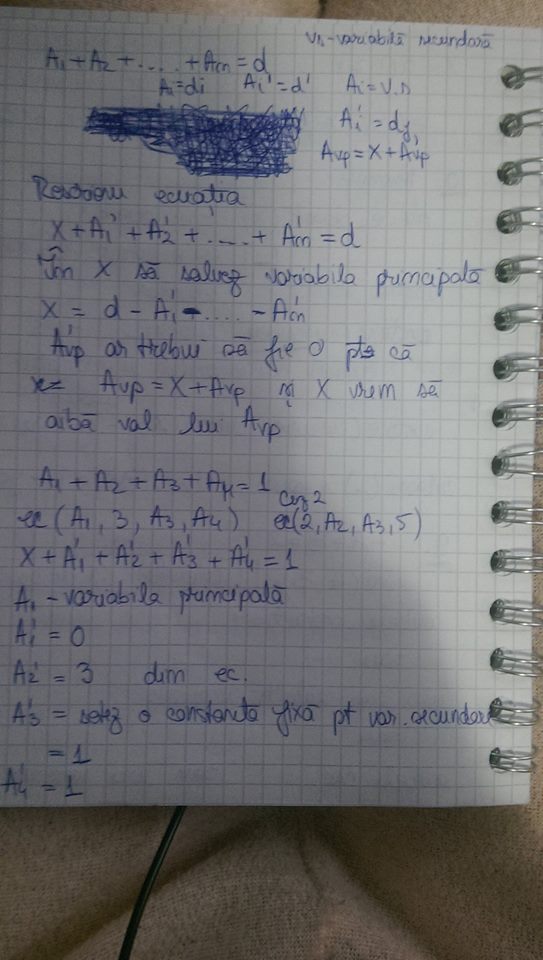 VS-variabilă secundară
A₁+A₂+.....+Am=d
Ai=di Ai'=d' Ai=V.S
Ai'=dj
Avp=X+Avp'
Rezolvăm ecuația
X+A₁'+A₂'+.....+Am'=d
În X să salvez variabila principală
X = d-A₁'-.....-Am'
A'vp ar trebui să fie 0 pt că
Avp=X+Avp și X vrem să
aibă val lui Avp
A₁+A₂+A₃+A₄=1
caz 2
ec(A₁, 3, A₃, A₄) ec(2, A₂, A₃, 5)
X+A₁'+A₂'+A₃'+A₄'=1
A₁-variabila principală
A₁'=0
A₂'=3 din ec.
A₃'= setez o constanta fixă pt var.secundare
=1
A₄'=1